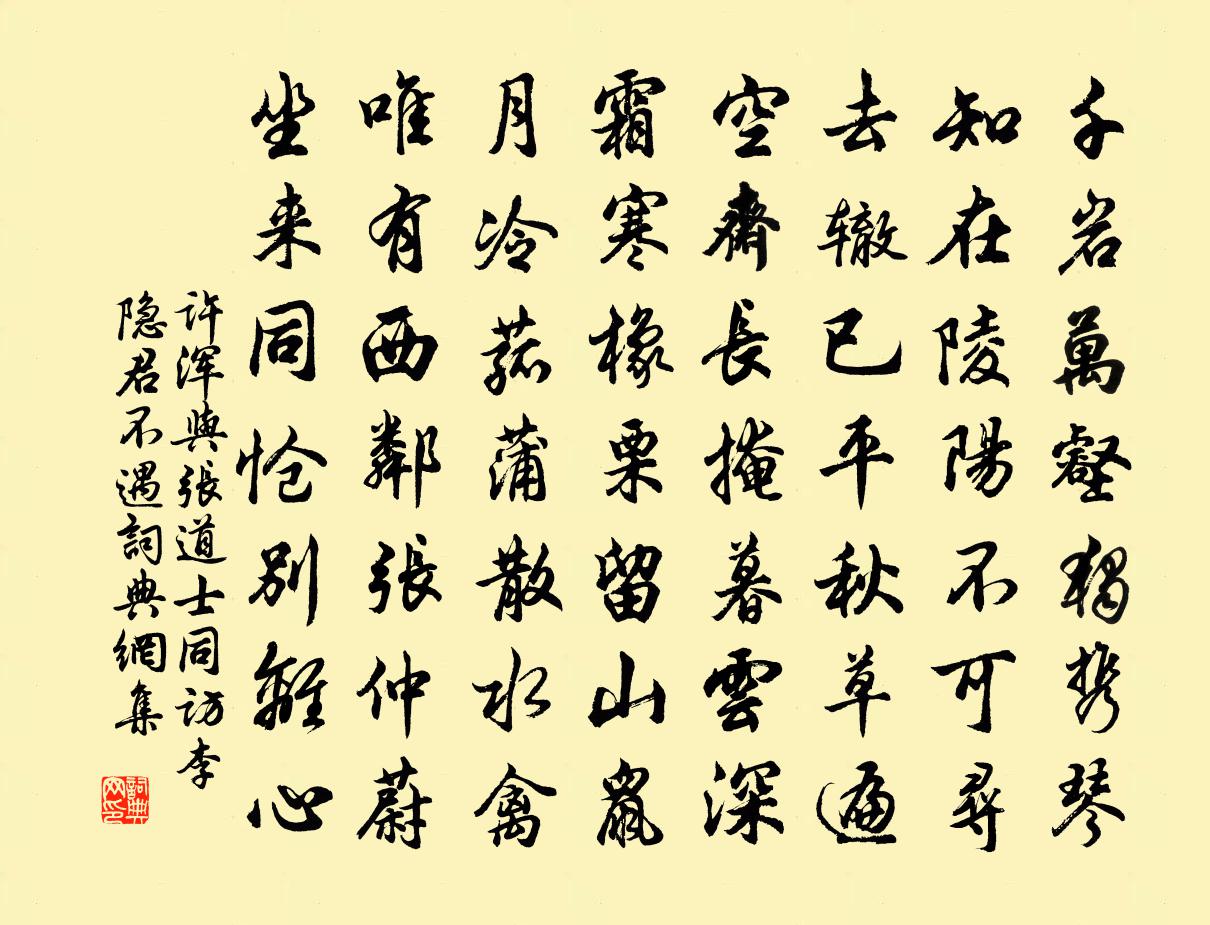 千岩萬壑獨携琴
知在陵陽不可尋
去辙已平秋草遍
空齋長掩暮雲深
霜寒橡栗留山鼠
月冷菰蒲散水禽
唯有西鄰張仲蔚
坐来同怆別離心
许浑與張道士同访李
隐君不遇詞典網集
詞典
网印